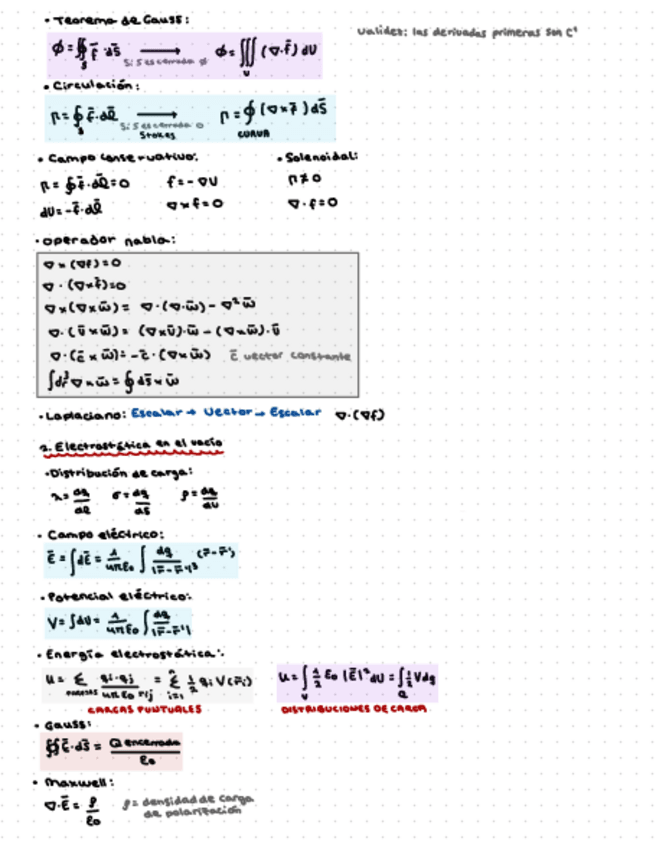 • Teorema de Gauss:
Validez: las derivadas primeras son C¹
ϕ = ∯_S f̄ · dS̄ ⟶ ϕ = ∭_V (∇·f̄) dV
Si S es cerrada
• Circulación:
Γ = ∮_S f̄ · dl̄ ⟶ Γ = ∮ (∇×f̄) dS̄
Si S es cerrada
Stokes
CURVA
• Campo conservativo:
• Solenoidal:
Γ = ∮ f̄ · dl̄ = 0 f = -∇U Γ ≠ 0
dU = -f̄ · dl̄ ∇×f = 0 ∇·f = 0
• Operador nabla:
∇×(∇f) = 0
∇·(∇×f̄) = 0
∇×(∇×ω̄) = ∇·(∇·ω̄) - ∇²ω̄
∇·(ū×ω̄) = (∇×ū)·ω̄ - (∇×ω̄)·ū
∇·(c̄×ω̄) = -c̄·(∇×ω̄) c̄ vector constante
∫dr³ ∇×ω̄ = ∮ ds̄×ω̄
• Laplaciano: Escalar → Vector → Escalar ∇·(∇f)
2. Electrostática en el vacío
• Distribución de carga:
λ = dq/dl σ = dq/dS ρ = dq/dV
• Campo eléctrico:
Ē = ∫dĒ = 1/4πε₀ ∫ dq/|r̄-r̄'|³ (r̄-r̄')
• Potencial eléctrico:
V = ∫dV = 1/4πε₀ ∫ dq/|r̄-r̄'|
• Energía electrostática:
U = Σ_parejas qi·qj/4πε₀ rij = Σⁿ_i=1 1/2 qi V(r̄i) U = ∫_V 1/2 ε₀ |Ē|² dV = ∫_Q 1/2 V dq
CARGAS PUNTUALES
DISTRIBUCIONES DE CARGA
• Gauss:
∯ Ē·dS̄ = Q encerrada/ε₀
• Maxwell:
∇·Ē = ρ/ε₀ ρ = densidad de carga
de polarización